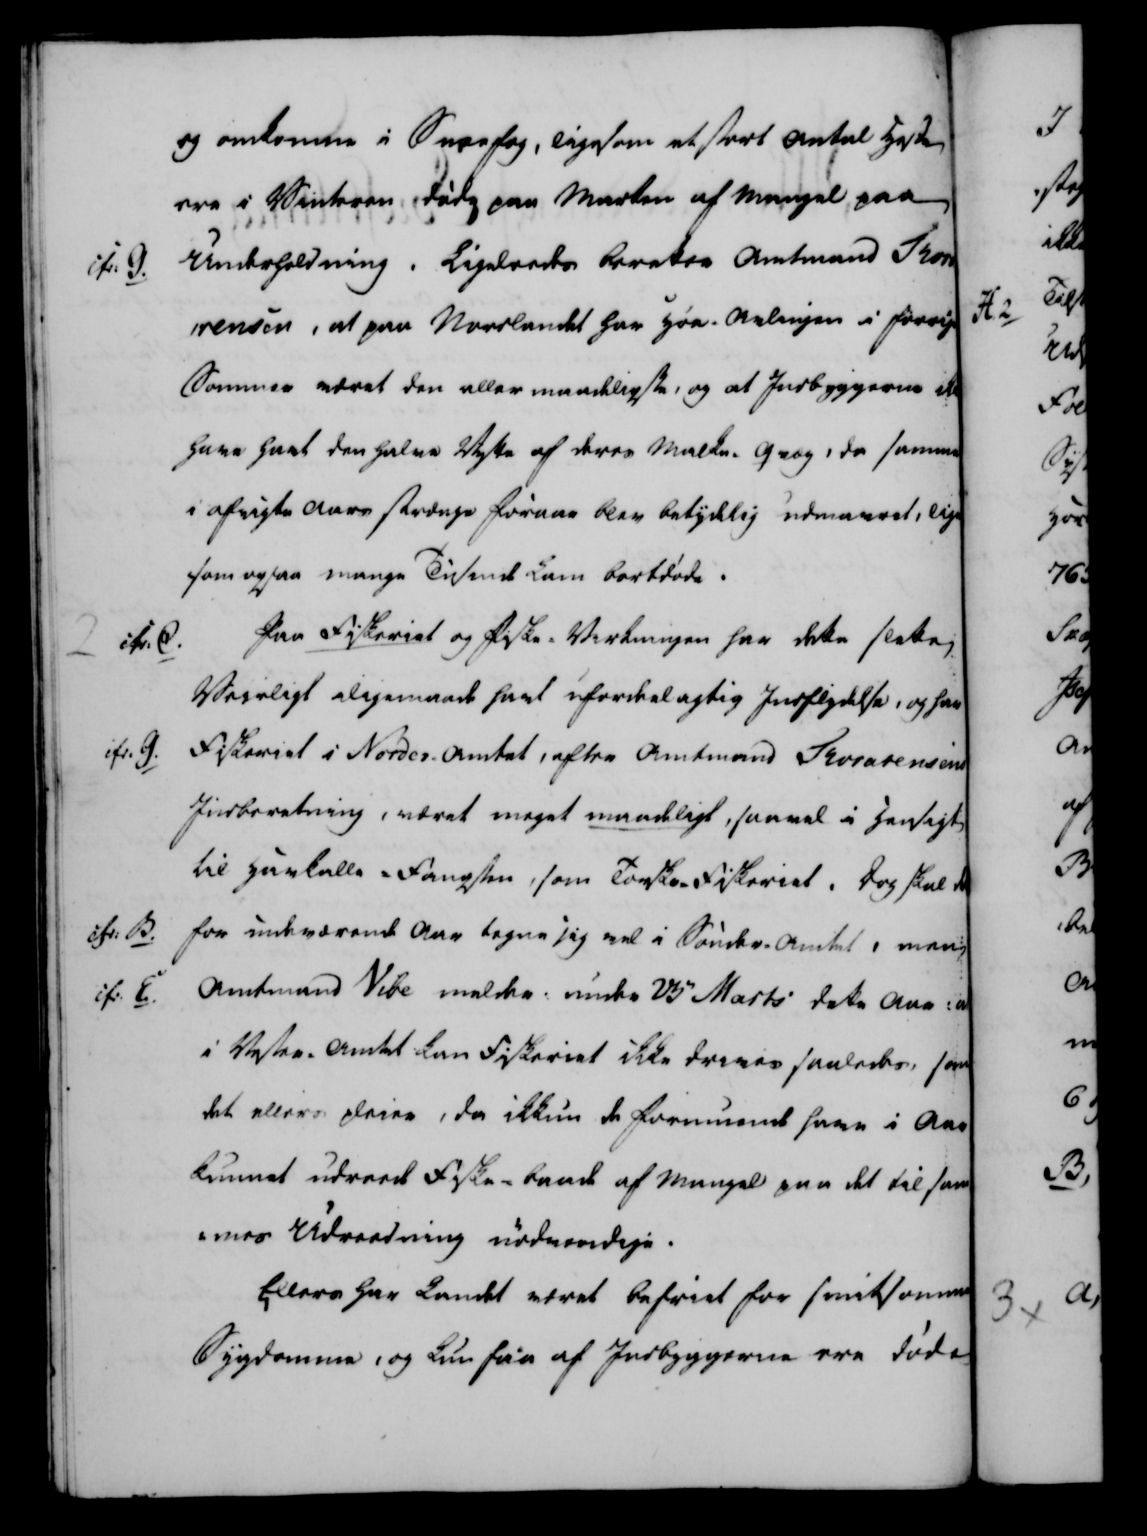 og omkomne i Sneefog, ligesom et stort Antal Heste
ere i Vinteren döde paa Marken af Mangel paa
cfr. G. Underholdning. Ligeledes beretter Amtmand Thora
rensen, at paa Norslandet har Höe-Avlingen i forrige
Sommer været den allermaadeligste, og at Indbyggerne ikke
have havt den halve Nytte af deres Malke-Qvæg, da samme
i afvigte Aars strænge Foraar blev betydelig udmavret, lige
som ogsaa mange Tusende Lam bortdöde.
2 cfr. C. Paa Fiskeriet og Fiske-Virkningen har dette slette
Veirligt aligemaade havt ufordeelagtig Indflydelse, og har
cfr. G. Fiskeriet i Norder-Amtet, efter Amtmand Thorarensens
Indberetning, været meget maadeligt, saavel i Hensigt
til Haukalle-Fangsten, som Torske-Fiskeriet. Dog skal det
cfr. B. for indeværende Aar tegne sig vel i Sönder-Amtet, men
cfr. E. Amtmand Vibe melder under Marts dette Aar: at
i Vester-Amtet kan Fiskeriet ikke drives saaledes, som
det ellers pleier, da ikkun de formuende have i Aar
kunnet udreede Fiske-baade af Mangel paa det til sam
mes Udreedning nödvendige.
Ellers har Landet været befriet for smitsomme
Sygdomme, og kun faa af Indbyggerne ere döde
H. 2
763
B,
3 x